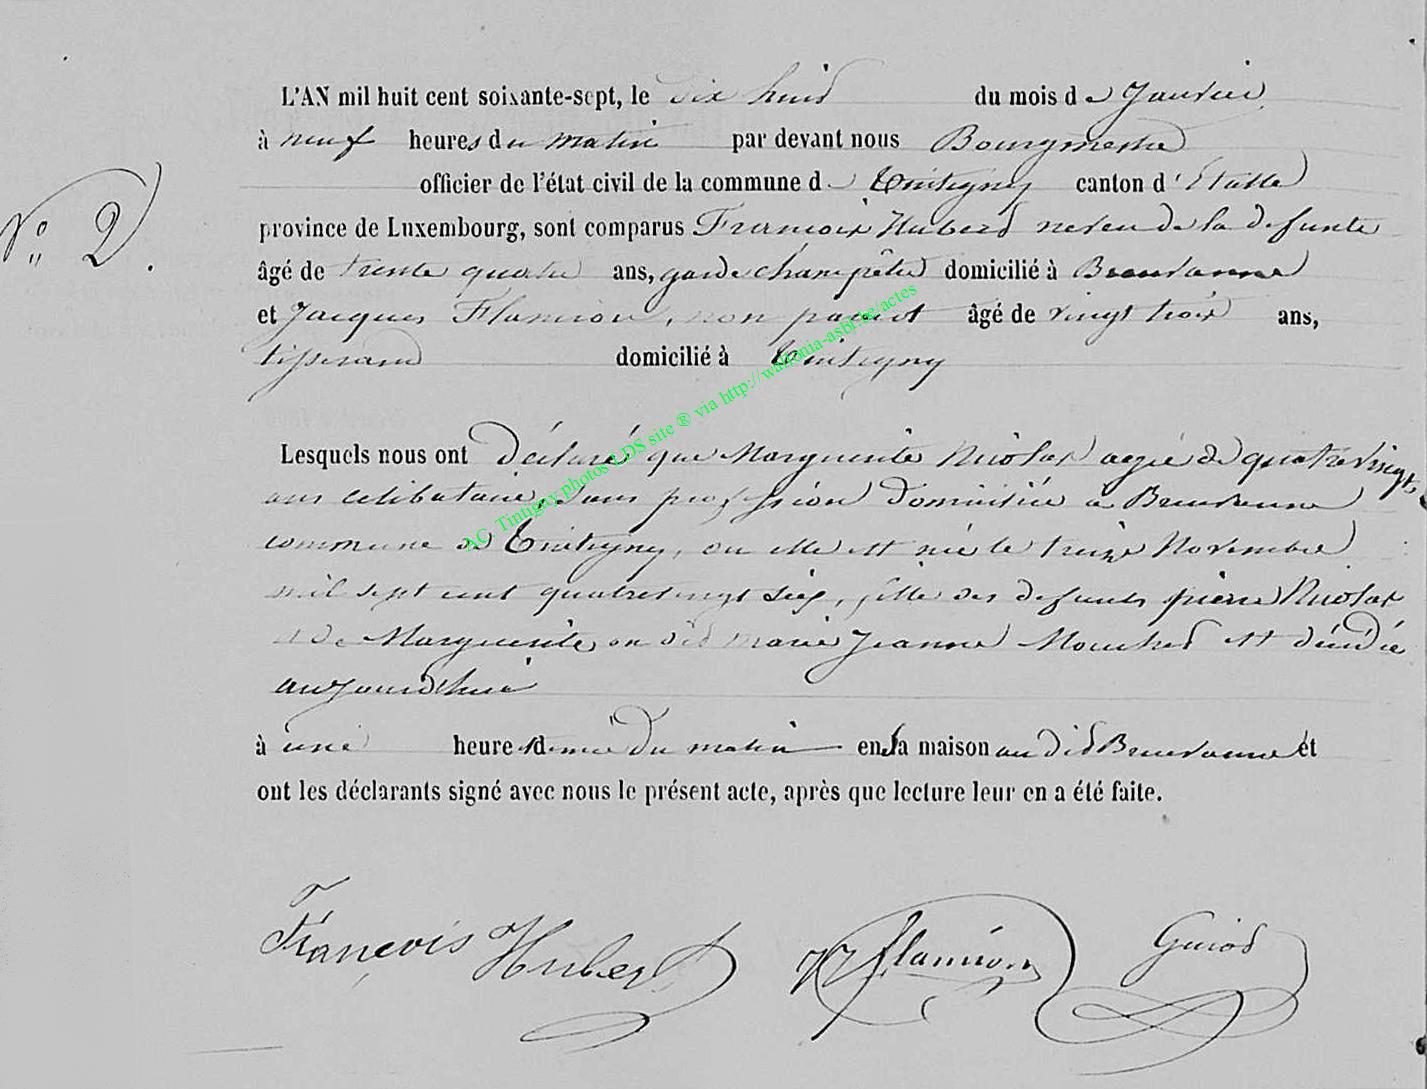 L'AN mil huit cent soixante-sept, le dix huit du mois de Janvier
à neuf heures du matin par devant nous Bourgmestre
officier de l'état civil de la commune de Tintigny canton d'Etalle
N° 2.
province de Luxembourg, sont comparus François Hubert neveu de la defunte
âgé de trente quatre ans, garde champêtre domicilié à Breuvanne
et Jacques Flamion, non parent âgé de vingt trois ans,
tisserand domicilié à Tintigny
AC Tintigny photos LDS site ® via http://wallonia-asbl.be/actes
Lesquels nous ont déclaré que Marguerite Nicolas agée de quatre vingts
ans celibataire, sans profession domiciliée à Breuvanne
commune de Tintigny, ou elle est née le treize Novembre
mil sept cent quatrevingt six, fille des defunts pierre Nicolas
et de Marguerite, on dit marie Jeanne Mouchet est décédée
aujourd'hui
à une heure demie du matin en sa maison au dit Breuvanne et
ont les déclarants signé avec nous le présent acte, après que lecture leur en a été faite.
François Hubert Flamion Guiot